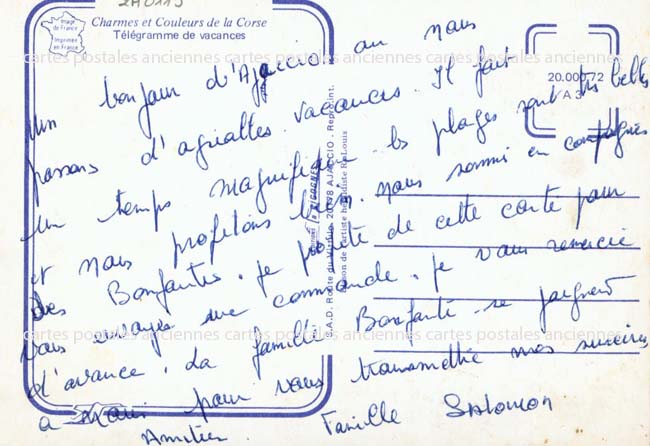 2A0115
Image de France
Imprimée en France
Charmes et Couleurs de la Corse
Télégramme de vacances
20.000.72
A 3
Un bonjour d'Ajaccio où nous
passons d'agréables vacances. Il fait
un temps magnifique. les plages sont très belles
et nous profitons bien. nous sommes en compagnie
des Bonfante. je profite de cette carte pour
vous envoyer une commande. je vous remercie
d'avance. La famille Bonfante se joignent
à moi pour vous transmettre nos sincères
Amitiés. Famille Salomon
C.A.D. Route du Vittulo 20178 AJACCIO . Repr. Int.
LES CIGOGNES
cartes postales anciennes cartes postales anciennes cartes postales anciennes
cartes postales anciennes cartes postales anciennes cartes postales anciennes